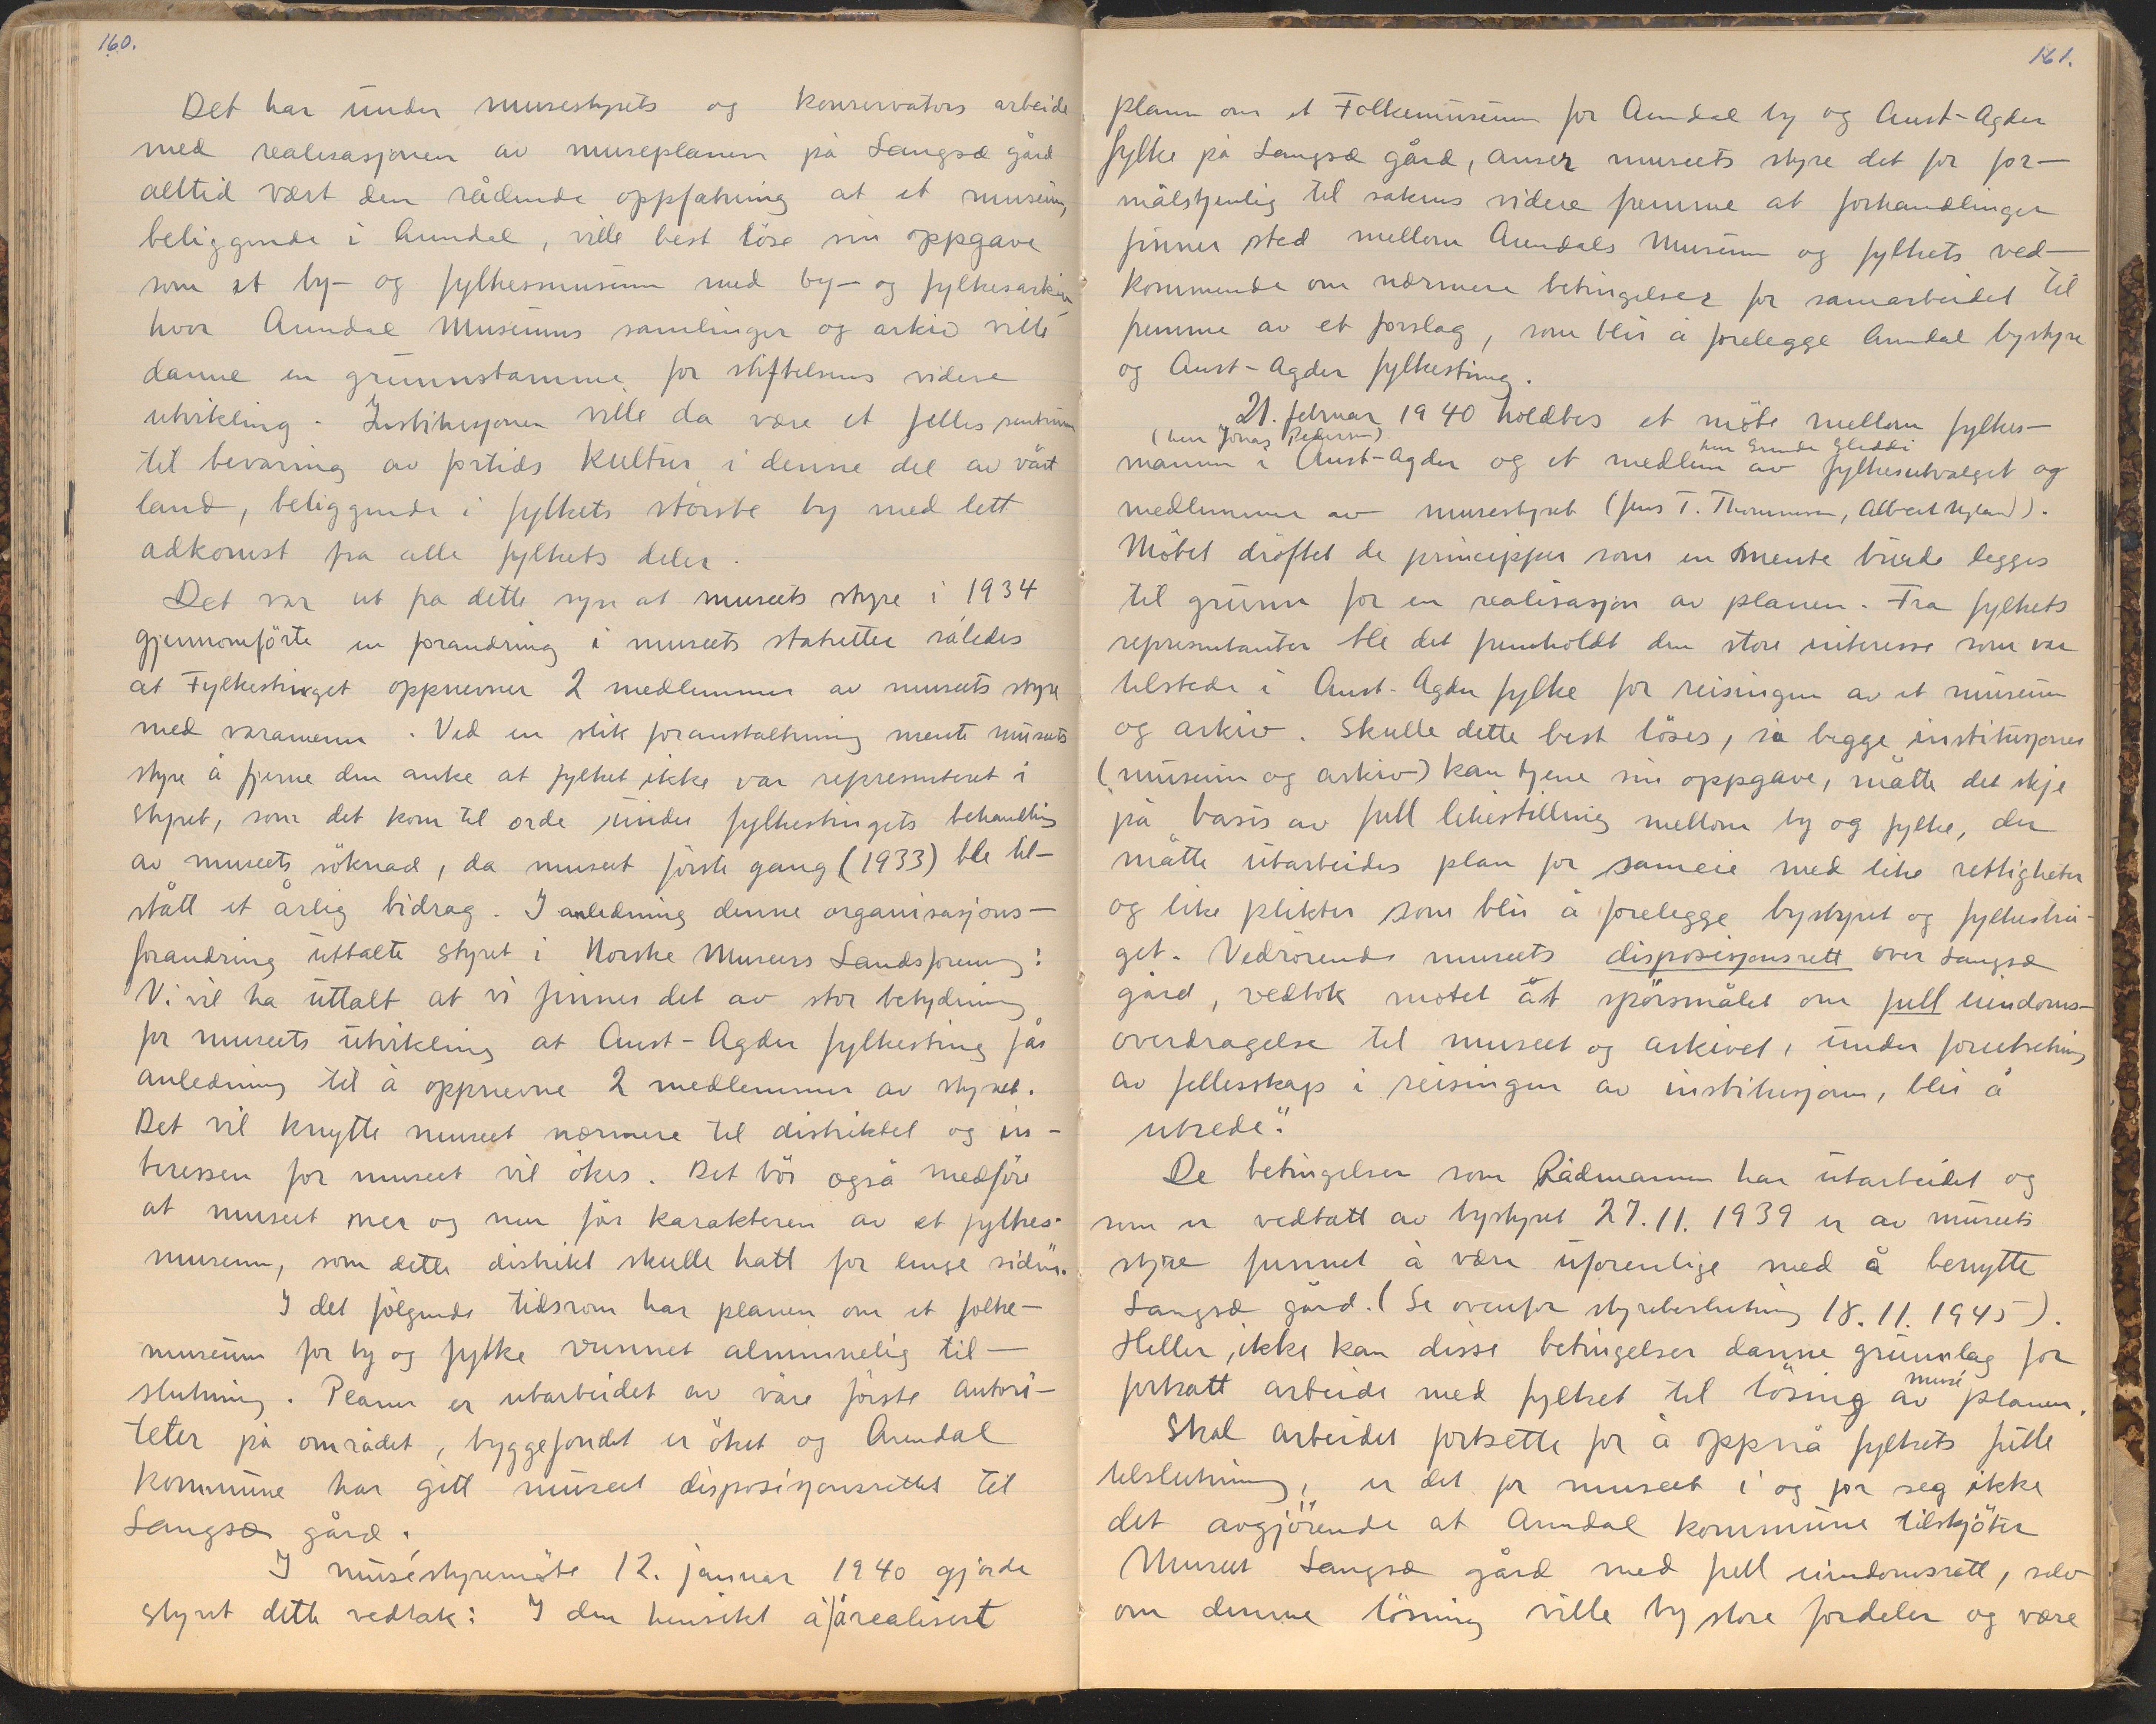 160.
Det har under musestyrets og konservators arbeide
med realisasjonen av museplanen på Langsæ gård
alltid vært den rådende oppfatning at et museum,
beliggende i Arendal, ville best löse sin oppgave
som et by- og fylkesmuseum med by- og fylkesarkiv
hvor Arendal Museums samlinger og arkiv ville
danne en grunnstamme for stiftelsens videre
utvikling. Institusjonen ville da være et felles sentrum
til bevaring av fortids kultur i denne del av vårt
land, beliggende i fylkets störste by med lett
adkomst fra alle fylkets deler.
Det var ut fra dette syn at museets styre i 1934
gjennomförte en forandring i museets statutter således
at Fylkestinget oppnevner 2 medlemmer av museets styre
med varamenn. Ved en slik foranstaltning mente museets
styre å fjerne den anke at fylket ikke var representeret i
styret, som det kom til orde under fylkestingets behandling
av museets söknad, da museet förste gang (1933) ble til-
stått et årlig bidrag. I anledning denne organisasjons-
forandring uttalte styret i Norske Museers Landsforening:
Vi vil ha uttalt at vi finner det av stor betydning
for museets utvikling at Aust-Agder fylkesting får
anledning til å oppnevne 2 medlemmer av styret.
Det vil knytte museet nærmere til distriktet og in-
teressen for museet vil ökes. Det bör også medföre
at museet mer og mer får karakteren av et fylkes-
museum, som dette distrikt skulle hatt for lenge siden".
I det fölgende tidsrom har planen om et folke-
museum for by og fylke vunnet alminnelig til-
slutning. Planer er utarbeidet av våre förste autori-
teter på området, byggefondet er öket og Arendal
kommune har gitt museet disposisjonsretten til
Langsæ gård.
I muséstyremöte 12. januar 1940 gjorde
styret dette vedtak: I den hensikt å årealisert
161.
planen om et Folkemuseum for Arendal by og Aust-Agder
fylke på Langsæ gård, anser museets styre det for for-
målstjenlig til sakens videre fremme at forhandlinger
finner sted mellom Arendals Museum og fylkets ved-
kommende om nærmere betingelser for samarbeidet til
fremme av et forslag, som blir å forelegge Arendal bystyre
og Aust-Agder fylkesting.
21. februar 1940 holdtes et möte mellom fylkes-
(herr Jonas Pedersen) herr Gunde Gleddi
mannen i Aust-Agder og et medlem av fylkesutvalget og
medlemmer av musestyret (Jens T. Thommesen, Albert Nyland).
Mötet dröftet de principper som en mente burde legges
til grunn for en realisasjon av planen. Fra fylkets
representanter ble det fremholdt den store interesse som var
tilstede i Aust-Agder fylke for reisingen av et museum
og arkiv. Skulle dette best löses, så begge institusjoner
(museum og arkiv) kan tjene sin oppgave, måtte det skje
på basis av full likestilling mellom by og fylke, der
måtte utarbeides plan for sameie med like rettigheter
og like plikter som blir å forelegge bystyret og fylkestin-
get. Vedrörende museets disposisjonsrett over Langsæ
gård, vedtok mötet åt spörsmålet om full eiendoms-
overdragelse til museet og arkivet, under forutsetning
av fellesskap i reisingen av institusjonen, blir å
utrede."
De betingelser som Rådmannen har utarbeidet og
som er vedtatt av bystyret 27.11.1939 er av museets
styre funnet å være uforenlige med å benytte
Langsæ gård. (Se ovenfor styrebeslutning 18.11.1945).
Heller ikke kan disse betingelser danne grunnlag for
fortsatt arbeide med fylket til lösing av musé planen.
Skal arbeidet fortsette for å oppnå fylkets fulle
tilslutning, er det for museet i og for seg ikke
det avgjörende at Arendal kommune tilskjöter
Museet Langsæ gård med full eiendomsrett, selv
om denne lösning ville by store fordeler og være